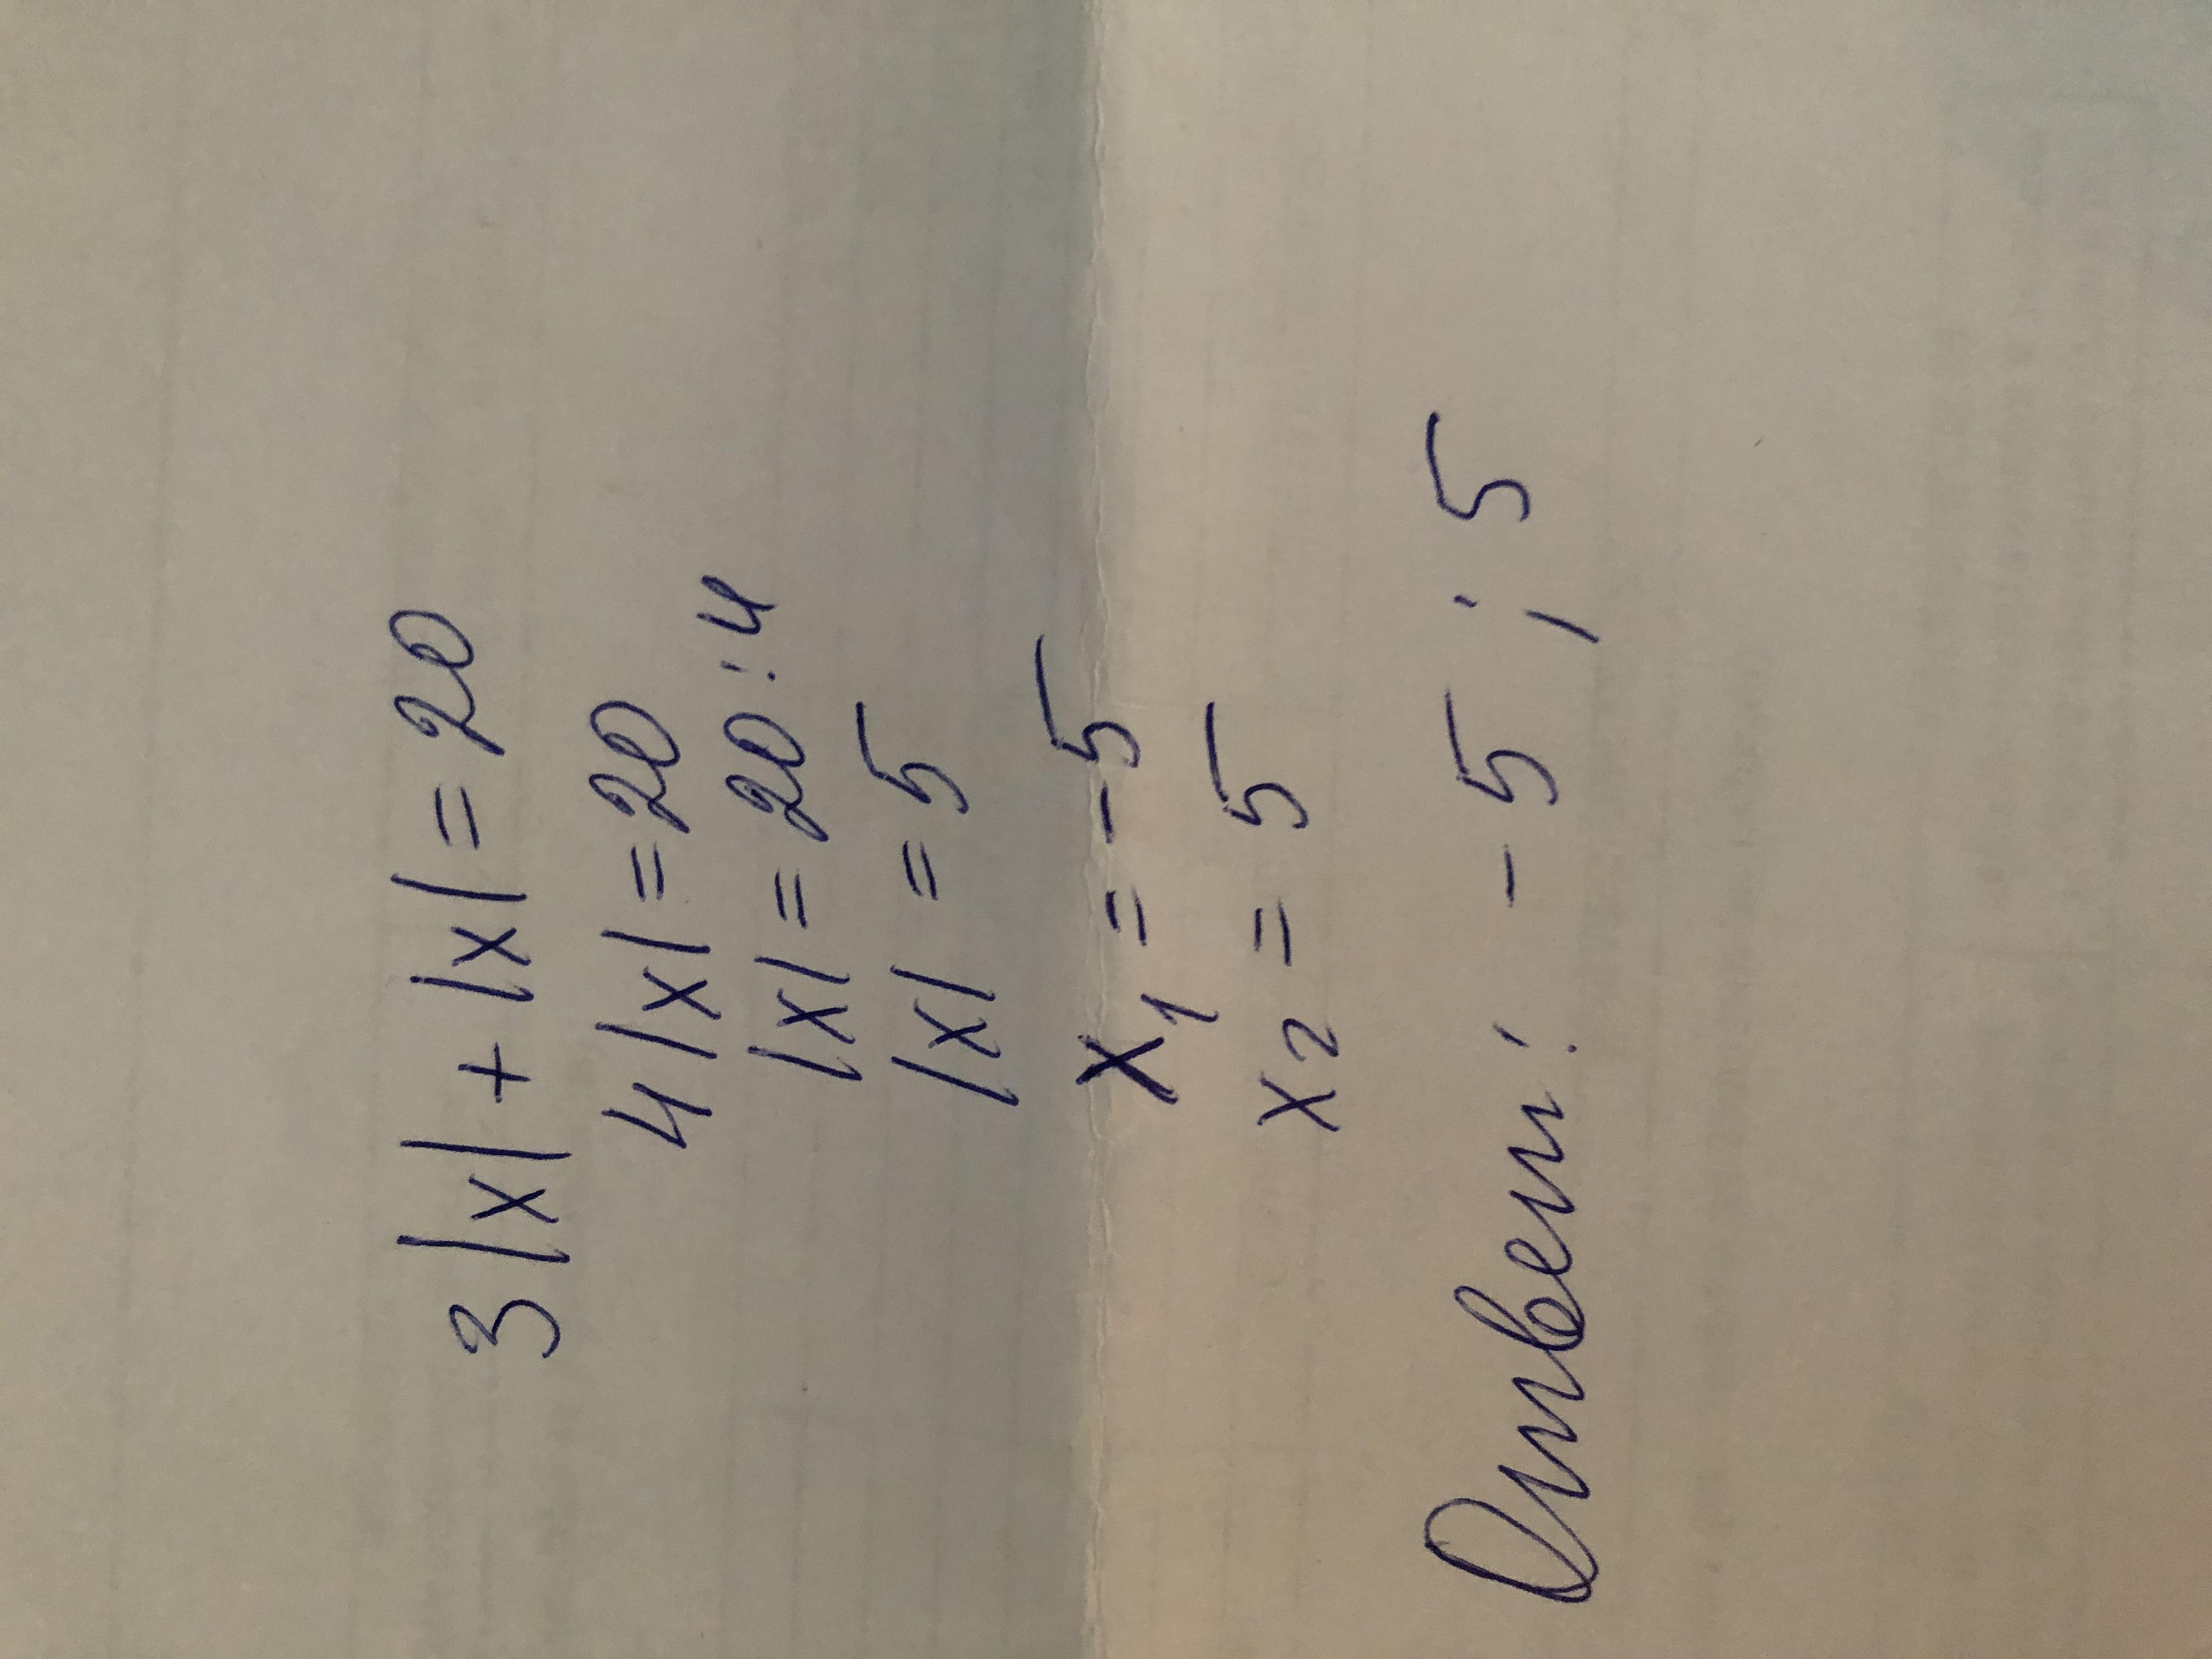 3|x| + |x| = 20
4|x| = 20
|x| = 20 : 4
|x| = 5
x₁ = -5
x₂ = 5
Ответ: -5 ; 5